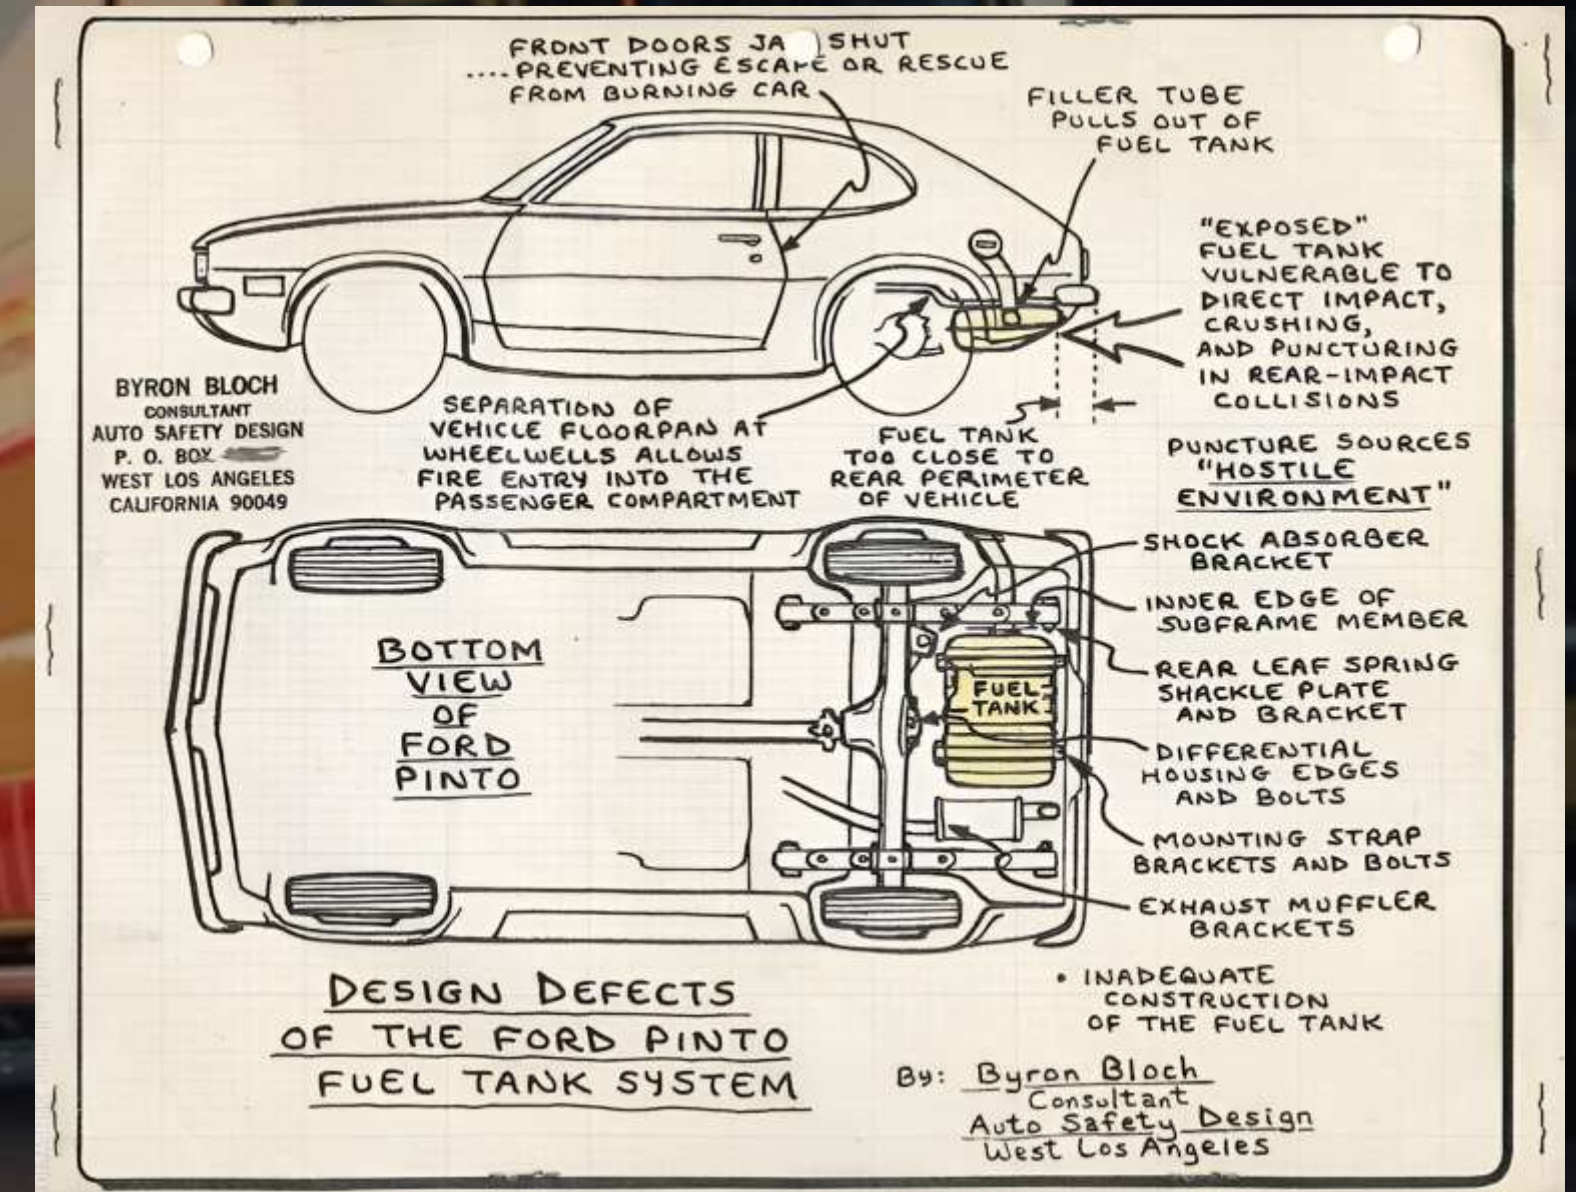 FRONT DOORS JA SHUT
....PREVENTING ESCAPE OR RESCUE
FROM BURNING CAR
FILLER TUBE
PULLS OUT OF
FUEL TANK
"EXPOSED"
FUEL TANK
VULNERABLE TO
DIRECT IMPACT,
CRUSHING,
AND PUNCTURING
IN REAR-IMPACT
COLLISIONS
BYRON BLOCH
CONSULTANT
AUTO SAFETY DESIGN
P. O. BOX
WEST LOS ANGELES
CALIFORNIA 90049
SEPARATION OF
VEHICLE FLOORPAN AT
WHEELWELLS ALLOWS
FIRE ENTRY INTO THE
PASSENGER COMPARTMENT
FUEL TANK
TOO CLOSE TO
REAR PERIMETER
OF VEHICLE
PUNCTURE SOURCES
"HOSTILE
ENVIRONMENT"
SHOCK ABSORBER
BRACKET
INNER EDGE OF
SUBFRAME MEMBER
REAR LEAF SPRING
SHACKLE PLATE
AND BRACKET
DIFFERENTIAL
HOUSING EDGES
AND BOLTS
MOUNTING STRAP
BRACKETS AND BOLTS
EXHAUST MUFFLER
BRACKETS
BOTTOM
VIEW
OF
FORD
PINTO
FUEL
TANK
DESIGN DEFECTS
OF THE FORD PINTO
FUEL TANK SYSTEM
• INADEQUATE
CONSTRUCTION
OF THE FUEL TANK
By: Byron Bloch
Consultant
Auto Safety Design
West Los Angeles